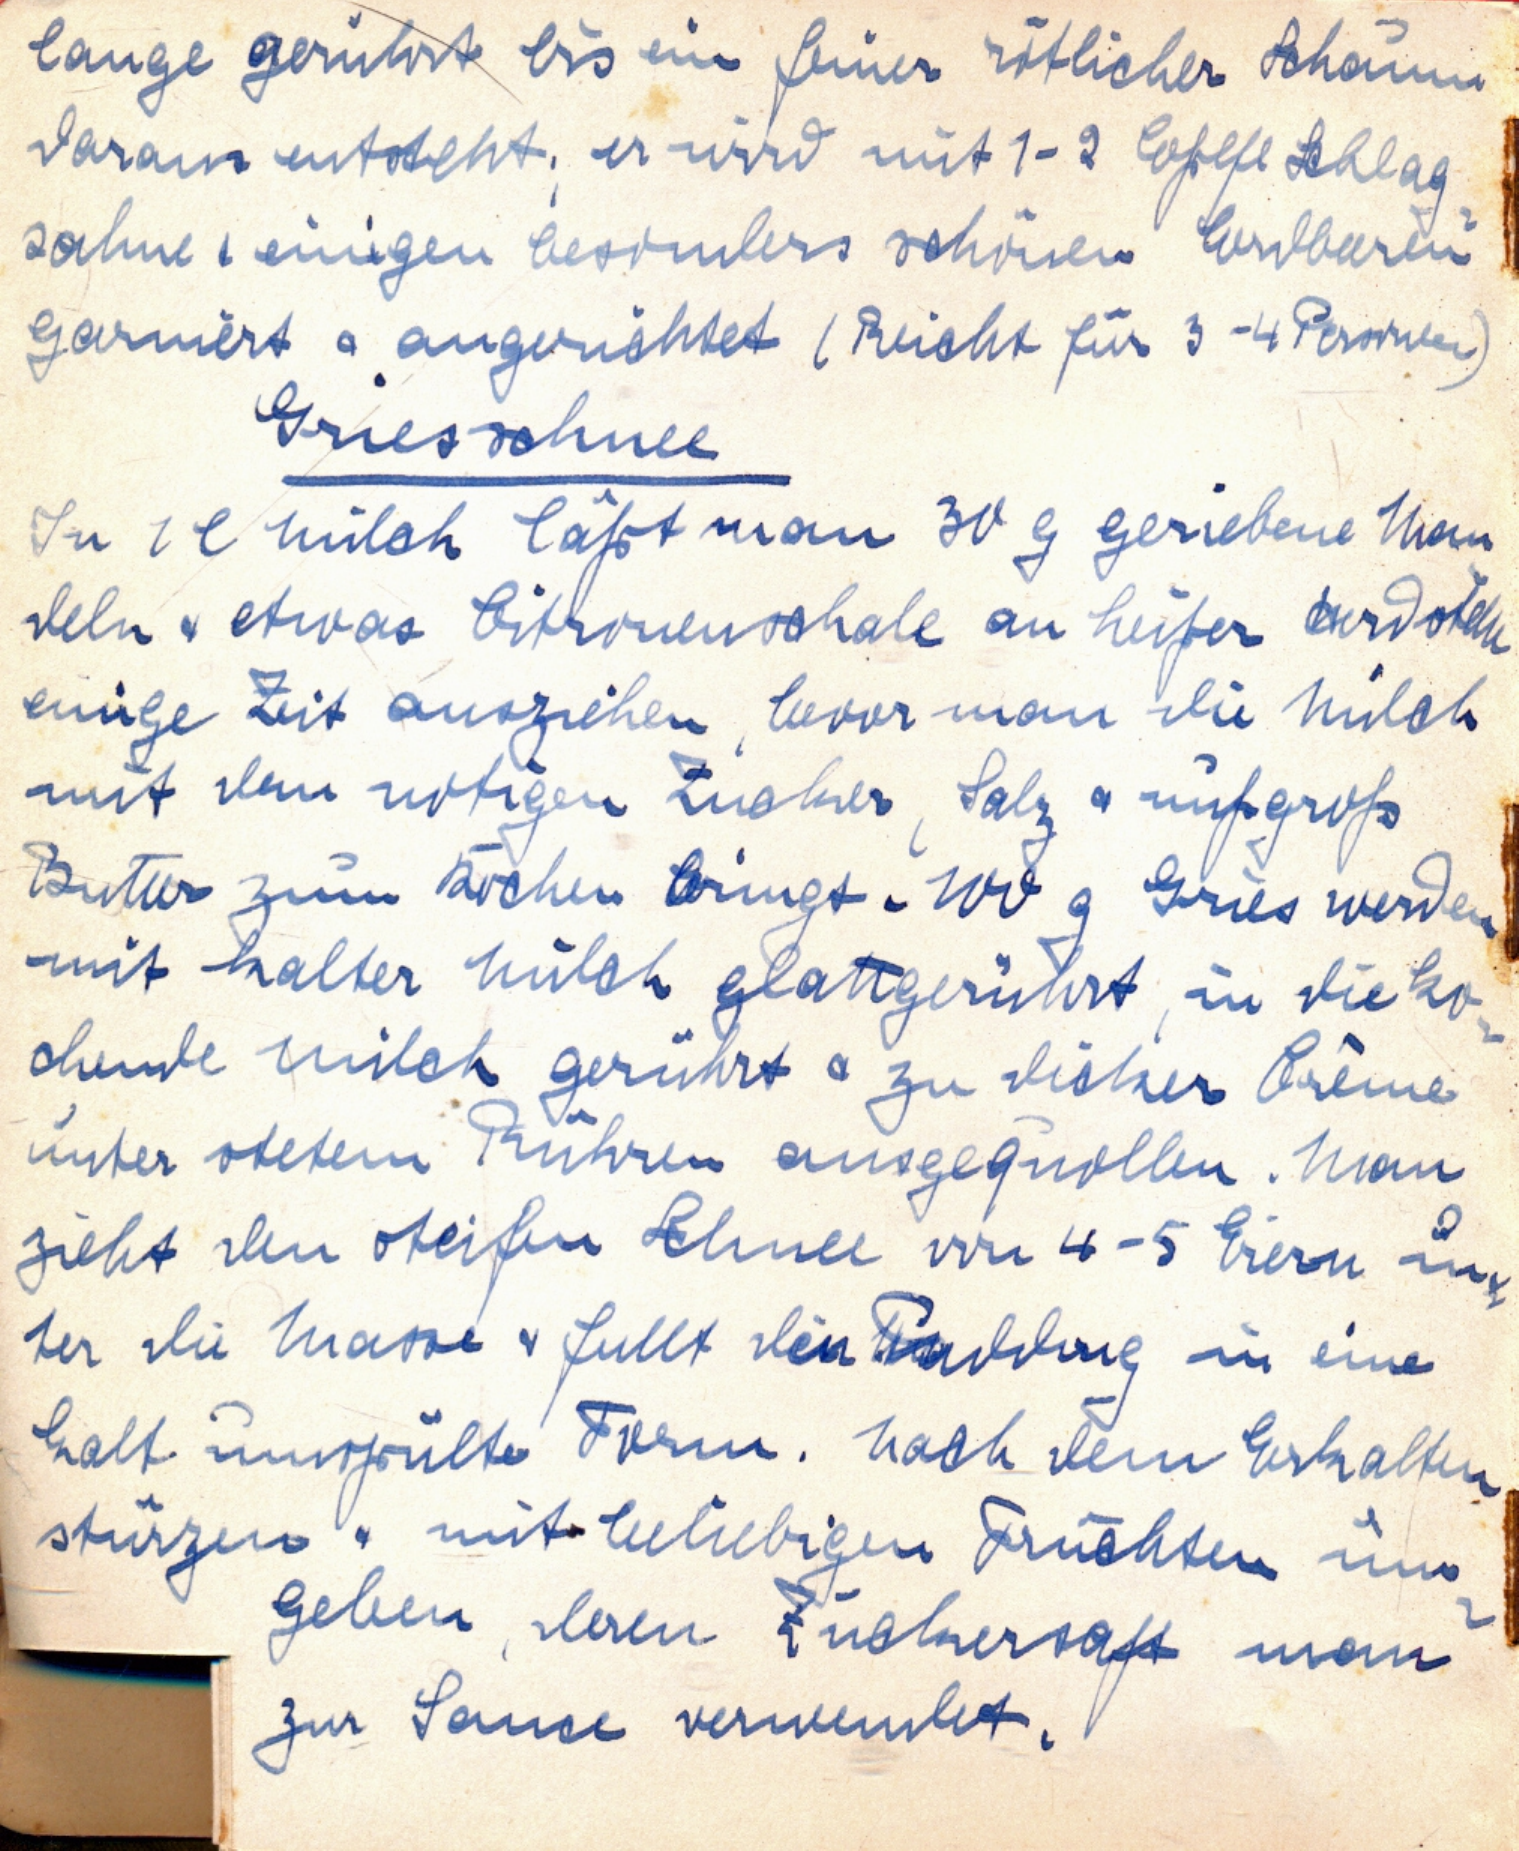 lange gerührt bis ein feiner rötlicher Schaum
daraus entsteht, er wird mit 1-2 Eßlfl Schlag-
sahne & einigen besonders schönen Erdbeeren
garniert & angerichtet (Reicht für 3-4 Personen)
Griesschnee
In 1 l Milch läßt man 30 g geriebene Man
deln & etwas Citronenschale an heißer Herdstelle
einige Zeit ausziehen, bevor man die Milch
mit dem notigen Zucker, Salz & nußgroß
Butter zum Kochen bringt. 100 g Gries werden
mit kalter Milch glattgerührt, in die ko-
chende Milch gerührt & zu dicker Crême
unter stetem Rühren ausgequollen. Man
zieht den steifen Schnee von 4-5 Eiern un-
ter die Masse & fullt den Pudding in eine
kalt umspülte Form. Nach dem Erkalten
stürzen & mit beliebigen Früchten um-
geben, deren Zuckersaft man
zur Sauce verwendet.